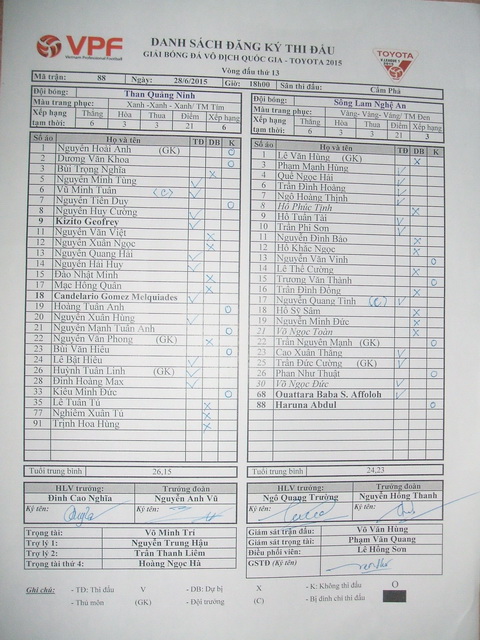 VPF
Vietnam Professional Football
DANH SÁCH ĐĂNG KÝ THI ĐẤU
GIẢI BÓNG ĐÁ VÔ ĐỊCH QUỐC GIA - TOYOTA 2015
Vòng đấu thứ 13
TOYOTA
Mã trận: 88 Ngày: 28/6/2015 Giờ: 18h00 Sân thi đấu: Cẩm Phả
Đội bóng: Than Quảng Ninh
Màu trang phục: Xanh -Xanh- Xanh/ TM Tím
Xếp hạng tạm thời: Thắng Hòa Thua Điểm Xếp hạng
6 3 3 21 6
Số áo Họ và tên TD DB K
1 Nguyễn Hoài Anh (GK) O
2 Dương Văn Khoa O
3 Bùi Trọng Nghĩa X
5 Nguyễn Minh Tùng V
6 Vũ Minh Tuấn (C) V
7 Nguyễn Tiến Duy O
8 Nguyễn Huy Cường V
9 Kizito Geofrey V
11 Nguyễn Văn Việt X
12 Nguyễn Xuân Ngọc X
13 Nguyễn Quang Hải V
14 Nguyễn Hải Huy V
15 Đào Nhật Minh X
17 Mạc Hồng Quân X
18 Candelario Gomez Melquiades V
19 Hoàng Tuấn Anh O
20 Nguyễn Xuân Hùng V
21 Nguyễn Mạnh Tuấn Anh O
22 Nguyễn Văn Phong (GK) X
23 Bùi Văn Hiếu O
24 Lê Bật Hiếu V
26 Huỳnh Tuấn Linh (GK) V
28 Đinh Hoàng Max V
33 Kiều Minh Đức O
35 Lê Tuấn Tú X
77 Nghiêm Xuân Tú X
91 Trịnh Hoa Hùng X
Tuổi trung bình 26,15
HLV trưởng: Trưởng đoàn
Đinh Cao Nghĩa Nguyễn Anh Vũ
Ký tên: Ký tên:
Trọng tài: Võ Minh Trí
Trợ lý 1: Nguyễn Trung Hậu
Trợ lý 2: Trần Thanh Liêm
Trọng tài thứ 4: Hoàng Ngọc Hà
Đội bóng: Sông Lam Nghệ An
Màu trang phục: Vàng- Vàng- Vàng/ TM Đen
Xếp hạng tạm thời: Thắng Hòa Thua Điểm Xếp hạng
6 3 3 21 3
Số áo Họ và tên TD DB K
1 Lê Văn Hùng (GK) X
3 Phạm Mạnh Hùng V
4 Quế Ngọc Hải V
6 Trần Đình Hoàng V
7 Ngô Hoàng Thịnh V
8 Hồ Phúc Tịnh X
9 Hồ Tuấn Tài V
10 Trần Phi Sơn V
11 Nguyễn Đình Bảo X
12 Hồ Khắc Ngọc X
13 Nguyễn Văn Vinh O
14 Lê Thế Cường X
15 Trương Văn Thành O
16 Trần Đình Đồng X
17 Nguyễn Quang Tình (C) V
18 Hồ Sỹ Sâm X
19 Nguyễn Minh Đức X
21 Võ Ngọc Toàn X
22 Trần Nguyên Mạnh (GK) O
23 Cao Xuân Thắng V
25 Trần Đức Cường (GK) V
26 Phan Như Thuật O
30 Võ Ngọc Đức V
68 Ouattara Baba S. Affoloh V
88 Haruna Abdul O
Tuổi trung bình 24,23
HLV trưởng: Trưởng đoàn
Ngô Quang Trường Nguyễn Hồng Thanh
Ký tên: Ký tên:
Giám sát trận đấu: Võ Văn Hùng
Giám sát trọng tài: Phạm Văn Quang
Điều phối viên: Lê Hồng Sơn
GSTĐ (Ký tên)
Ghi chú: - TD: Thi đấu V - DB: Dự bị X - K: Không thi đấu O
- Thủ môn (GK) - Đội trưởng (C) - Bị đình chỉ thi đấu